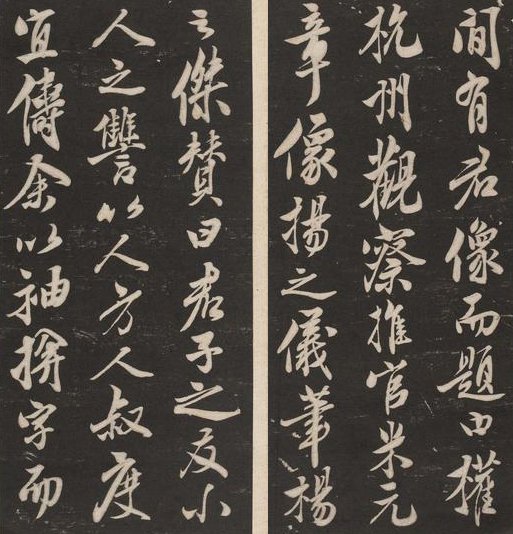 間有君像而題曰權
杭州觀察推官米元
章像揚之儀華楊
之傑贊曰君子之友小
人之讎以人方人叔度
宜儔余以袖揜字而